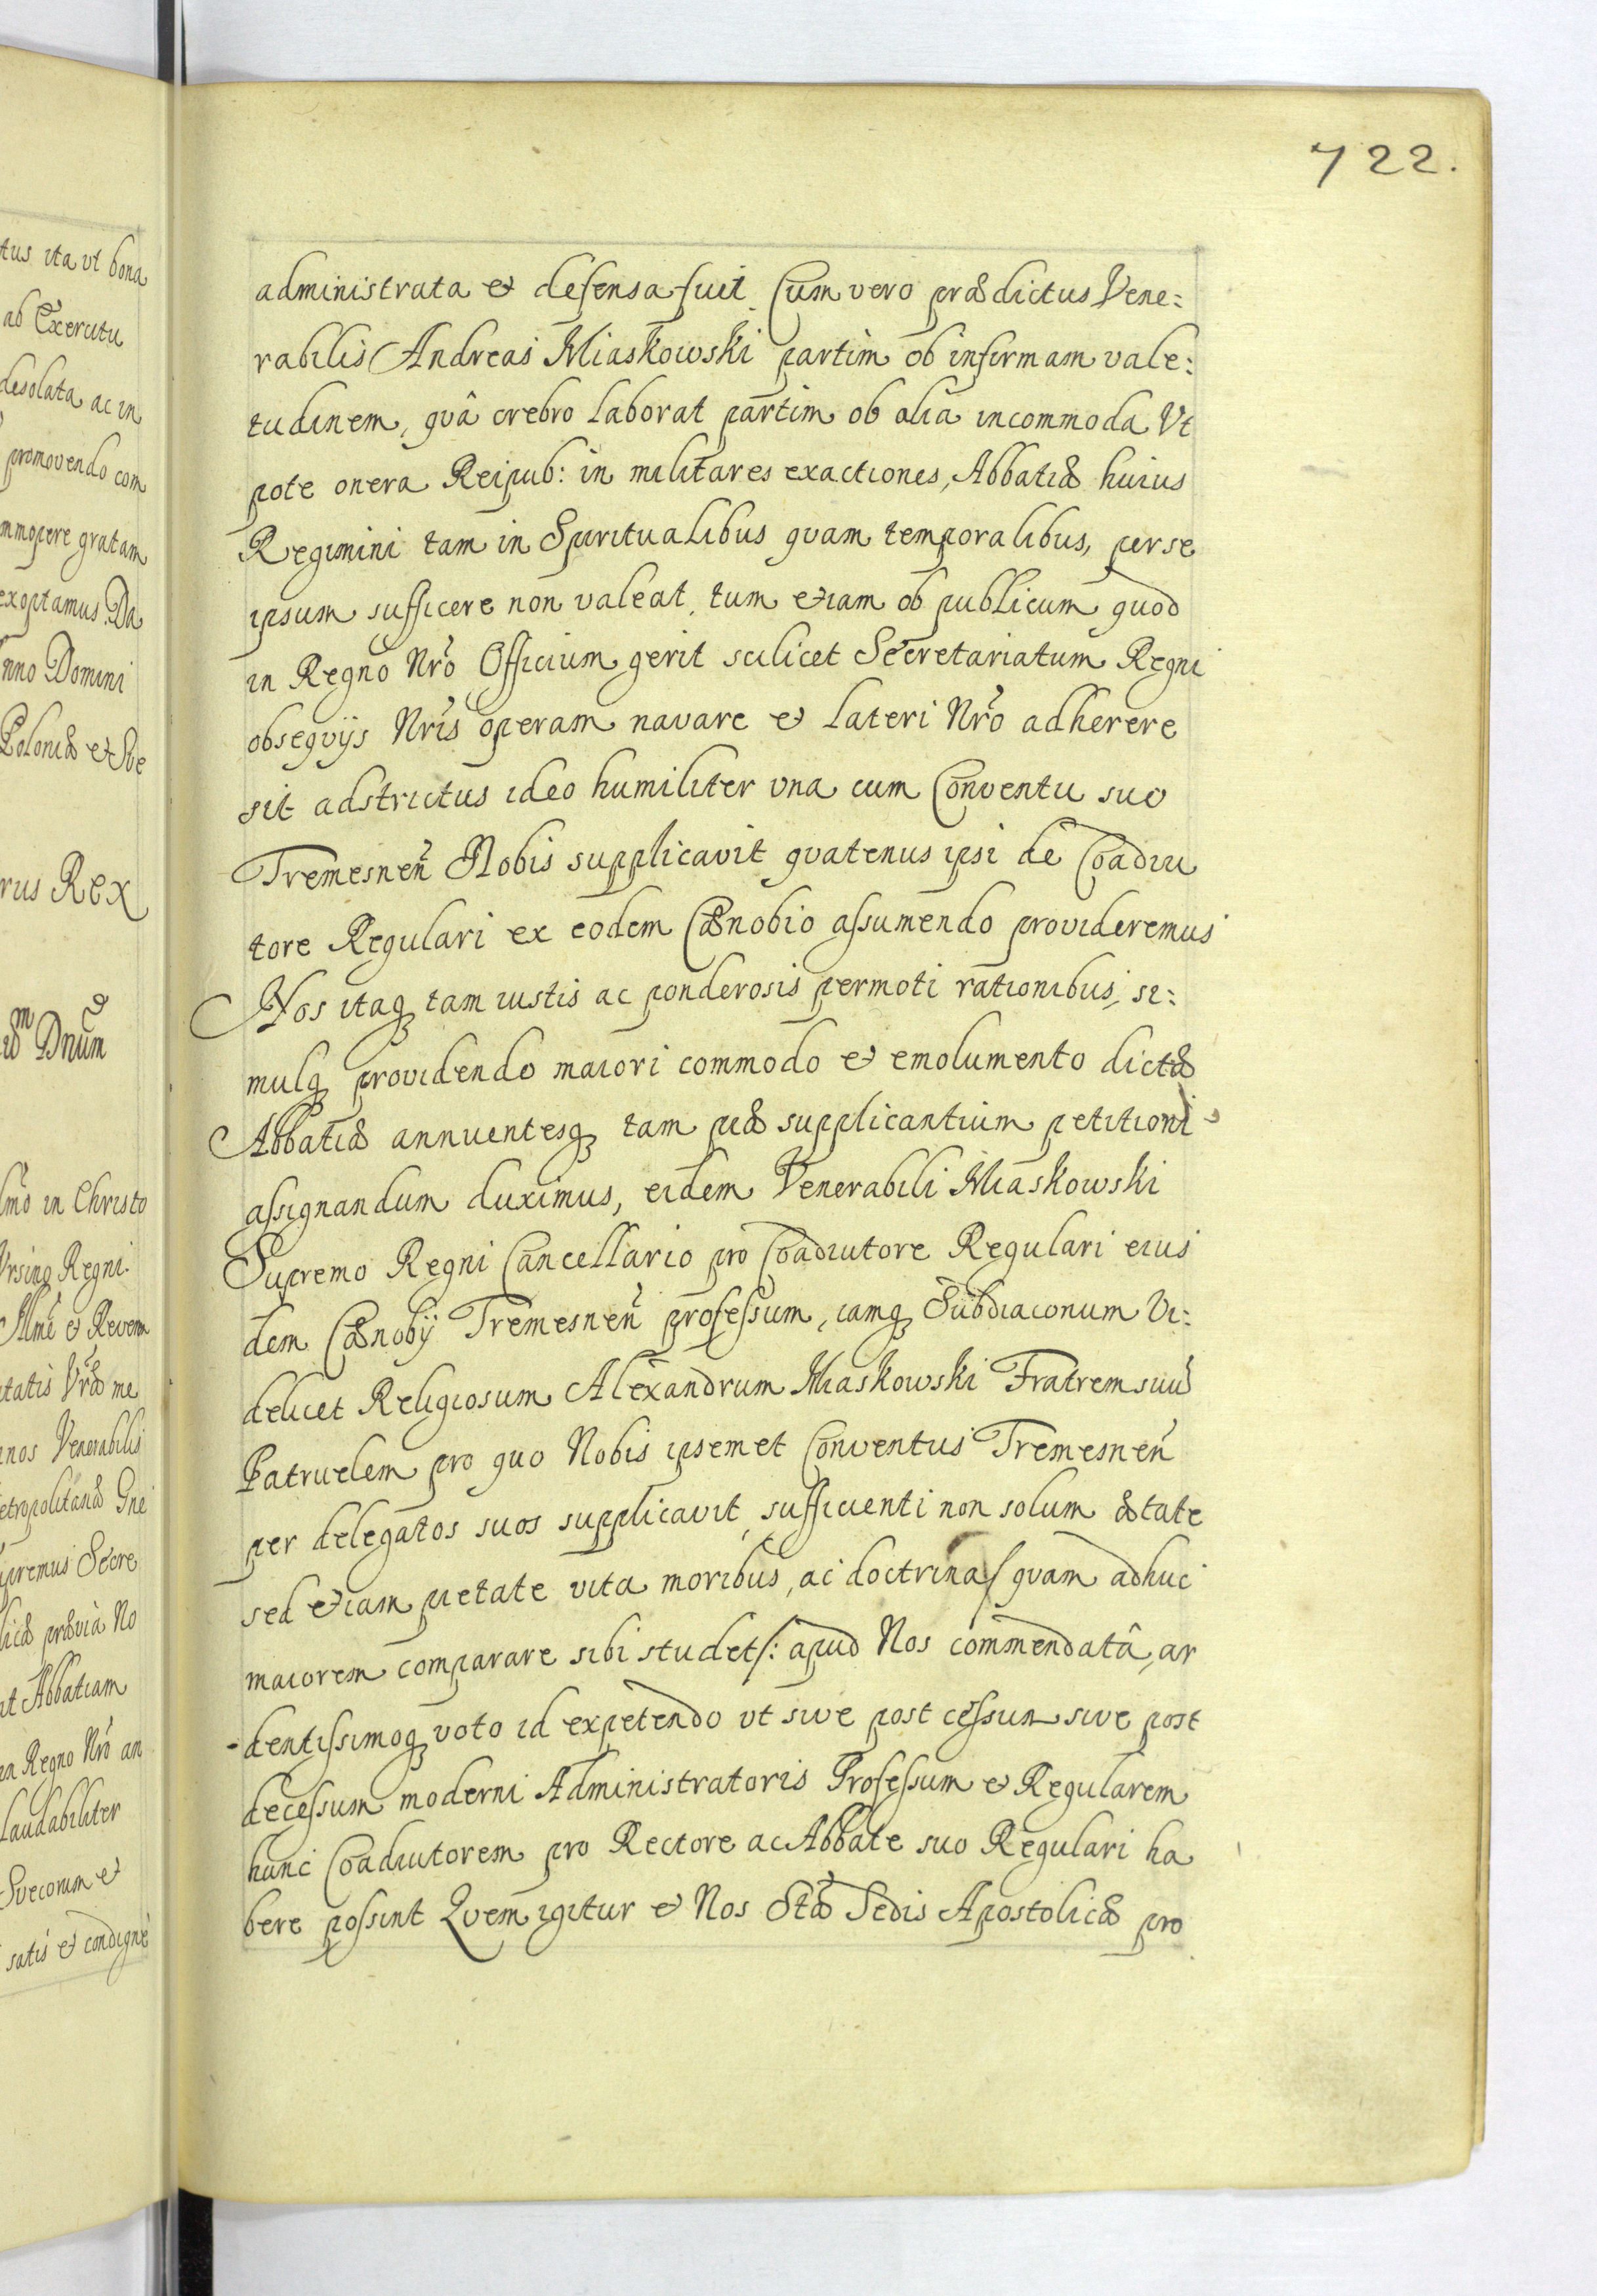 722.
administrata et defensa fuit. Cum vero prædictus Vene:
rabilis Andreas Miaskowski partim ob infirmam vale:
tudinem, quâ crebro laborat partim ob alia incommoda Vt
pote onera Reipub: in militares exactiones, Abbatiæ huius
Regimini tam in Spiritualibus quam temporalibus, per se
ipsum sufficere non valeat, tum etiam ob publicum quod
in Regno Nr̃o Officium gerit scilicet Secretariatum Regni
obsequijs Nr̃is operam navare et lateri Nr̃o adherere
sit adstrictus ideo humiliter vna cum Conventu suo
Tremesneñ Nobis supplicavit quatenus ipsi de Coadiu
tore Regulari ex eodem Cænobio assumendo provideremus
Nos itaq tam iustis ac ponderosis permoti rationibus, si:
mulq providendo maiori commodo et emolumento dictæ
Abbatiæ annuentesq tam piæ supplicantium petitioni
assignandum duximus, eidem Venerabili Miaskowski
Supremo Regni Cancellario pro Coadiutore Regulari eius
dem Cænobij Tremesneñ professum, iamq Subdiaconum Vi:
delicet Religiosum Alexandrum Miaskowski Fratrem suũ
Patruelem pro quo Nobis ipsemet Conventus Tremesneñ
per delegatos suos supplicavit, sufficienti non solum ætate
sed etiam pietate vita moribus, ac doctrina/ quam adhuc
maiorem comparare sibi studet/: apud Nos commendatâ, ar
dentissimoq voto id expetendo vt sive post cessum sive post
decessum moderni Administratoris Professum et Regularem
hunc Coadiutorem pro Rectore ac Abbate suo Regulari ha
bere possint Quem igitur et Nos Stæ Sedis Apostolicæ pro
tus ita vt bona
ab Exercitu
desolata ac in
promovendo com
mmopere gratam
exoptamus. Da
nno Domini
Poloniæ et Sve
rus Rex
Dnũm
in Christo
Vrsino Regni
Illmẽ et Revem
tatis Vr̃æ me
nos Venerabilis
etropolitanæ Gne
upremus Secre
licæ prævia No
t Abbatiam
in Regno Nr̃o an
laudabiliter
Svecorum et
satis et condigne